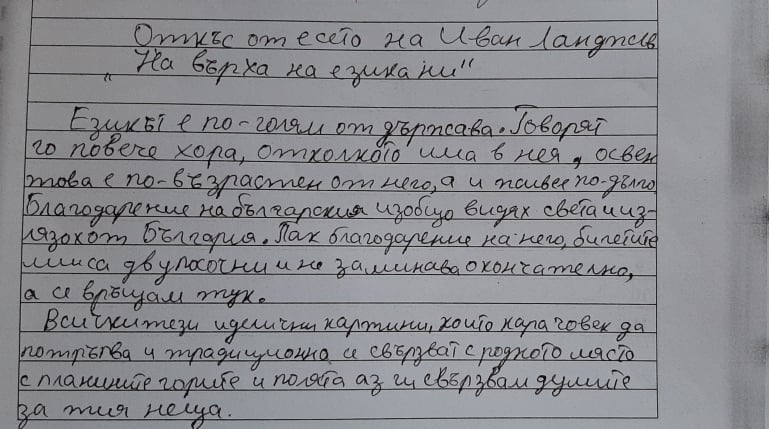 Откъс от есето на Иван Ланджев
„На върха на езика ни"
Езикът е по-голям от държава. Говорят
го повече хора, отколкото има в нея, освен
това е по-възрастен от него, а и живее по-дълго.
Благодарение на българския изобщо видях света и из-
лязох от България. Пак благодарение на него, билетите
ми са двупосочни и не заминава окончателно,
а се връщам тук.
Всички тези идилични картини, които кара човек да
потръпва и традиционно се свързват с родното място
с планините горите и полята аз ги свързвам думите
за тия неща.